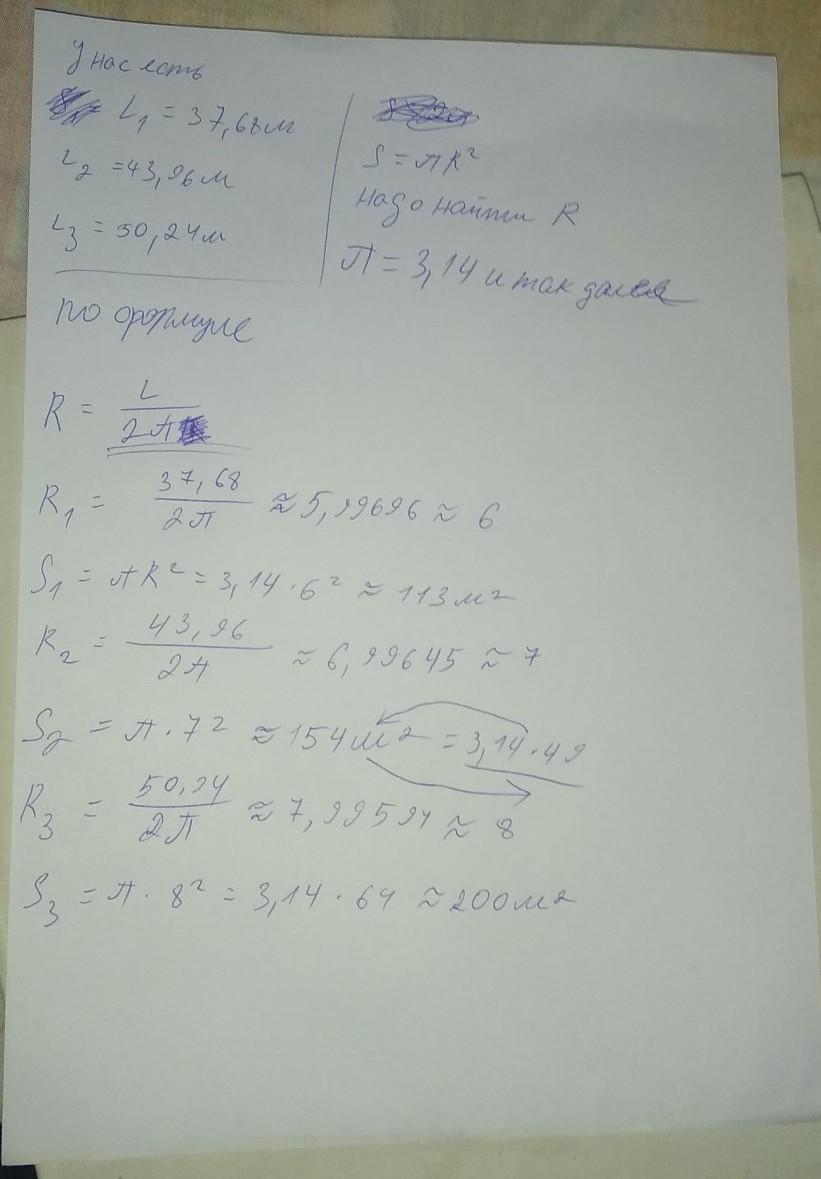 У нас есть
L₁ = 37,68м
L₂ = 43,96м
L₃ = 50,24м
S = πR²
надо найти R
π = 3,14 и так далее
по формуле
R = L / 2π
R₁ = 37,68 / 2π ≈ 5,99696 ≈ 6
S₁ = πR² = 3,14 · 6² ≈ 113м²
R₂ = 43,96 / 2π ≈ 6,99645 ≈ 7
S₂ = π · 7² ≈ 154м² = 3,14 · 49
R₃ = 50,24 / 2π ≈ 7,99594 ≈ 8
S₃ = π · 8² = 3,14 · 64 ≈ 200м²